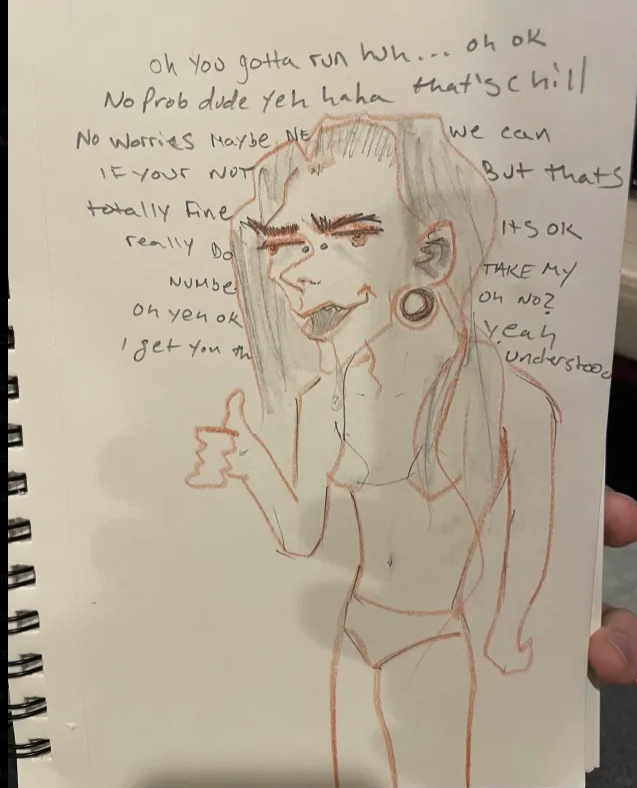 oh you gotta run huh... oh ok
No Prob dude yeh haha that's chill
No worries maybe NE we can
IF your NOT But thats
totally Fine Its OK
really Do TAKE MY
NUMBE oh NO?
oh yeh ok yeah
I get you th understood